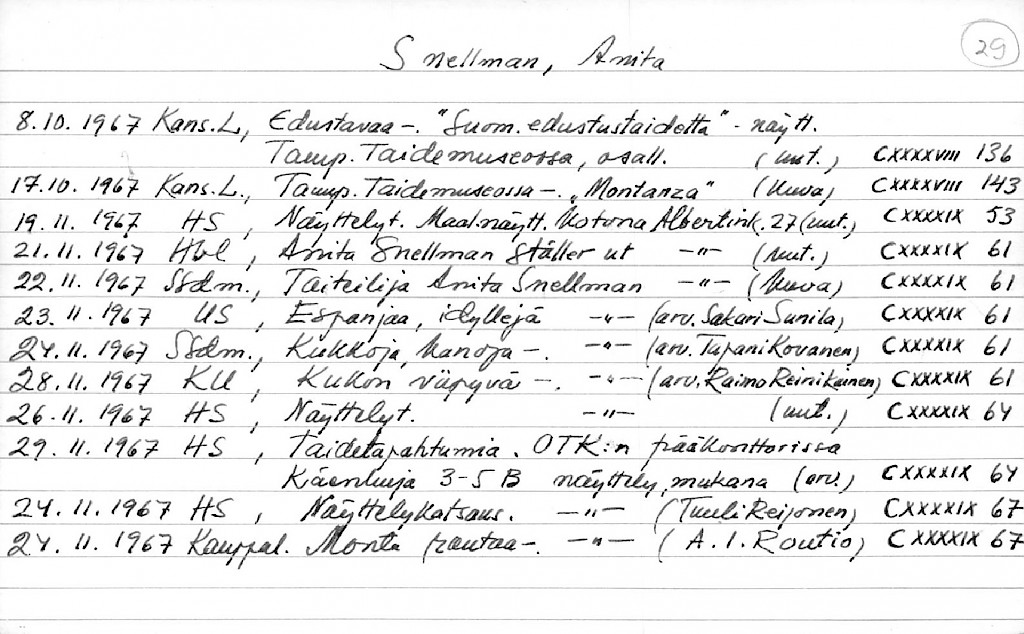 29
Snellman, Anita
8.10.1967 Kans.L, Edustavaa -. "Suom.edustustaidetta" - näytt.
Tamp. Taidemuseossa, osall. (uut.) CXXXXVIII 136
17.10.1967 Kans.L., Tamp. Taidemuseossa -. "Montanza" (kuva) CXXXXVIII 143
19.11.1967 HS, Näyttelyt. Maal.näytt. Kotona Albertink. 27 (uut.) CXXXXIX 53
21.11.1967 Hbl, Anita Snellman ställer ut -"- (uut.) CXXXXIX 61
22.11.1967 Ssdm., Taiteilija Anita Snellman -"- (kuva) CXXXXIX 61
23.11.1967 US, Espanjaa, idyllejä -"- (arv. Sakari Sunila) CXXXXIX 61
24.11.1967 Ssdm., Kukkoja, kanoja -. -"- (arv. Tapani Kovanen) CXXXXIX 61
28.11.1967 KU, Kukon väpyvä -. -"- (arv. Raimo Reinikainen) CXXXXIX 61
26.11.1967 HS, Näyttelyt. -"- (uut.) CXXXXIX 64
29.11.1967 HS, Taidetapahtumia. OTK:n pääkonttorissa
Käenkuja 3-5 B näyttely, mukana (arv.) CXXXXIX 64
24.11.1967 HS, Näyttelykatsaus. -"- (Tuuli Reijonen) CXXXXIX 67
24.11.1967 Kauppal. Monta rautaa -. -"- (A.I. Routio) CXXXXIX 67